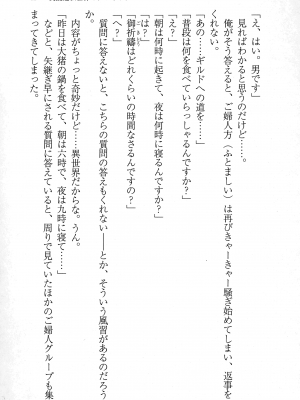 「え、はい。男です」
見ればわかると思うのだけど……。
俺がそう答えると、ご婦人方（ふとましい）は再びきゃーきゃー騒ぎ始めてしまい、返事を
くれない。
「あの、ギルドへの道を……」
「普段は何を食べていらっしゃるんですか？」
「え？」
「朝は何時に起きて、夜は何時に寝るんですか？」
「は？」
「御祈禱はどれくらいの時間なさるんですか？」
「へ？」
質問に答えないと、こちらの質問の答えもくれない――とか、そういう風習があるのだろう
か。
内容がちょっと奇妙だけど……異世界だからな。うん。
「昨日は大猪の鍋を食べて、朝は六時で、夜は九時に寝て……」
などと、矢継ぎ早にされる質問に答えていると、周りで見ていたほかのご婦人グループも集
まってきてしまった。